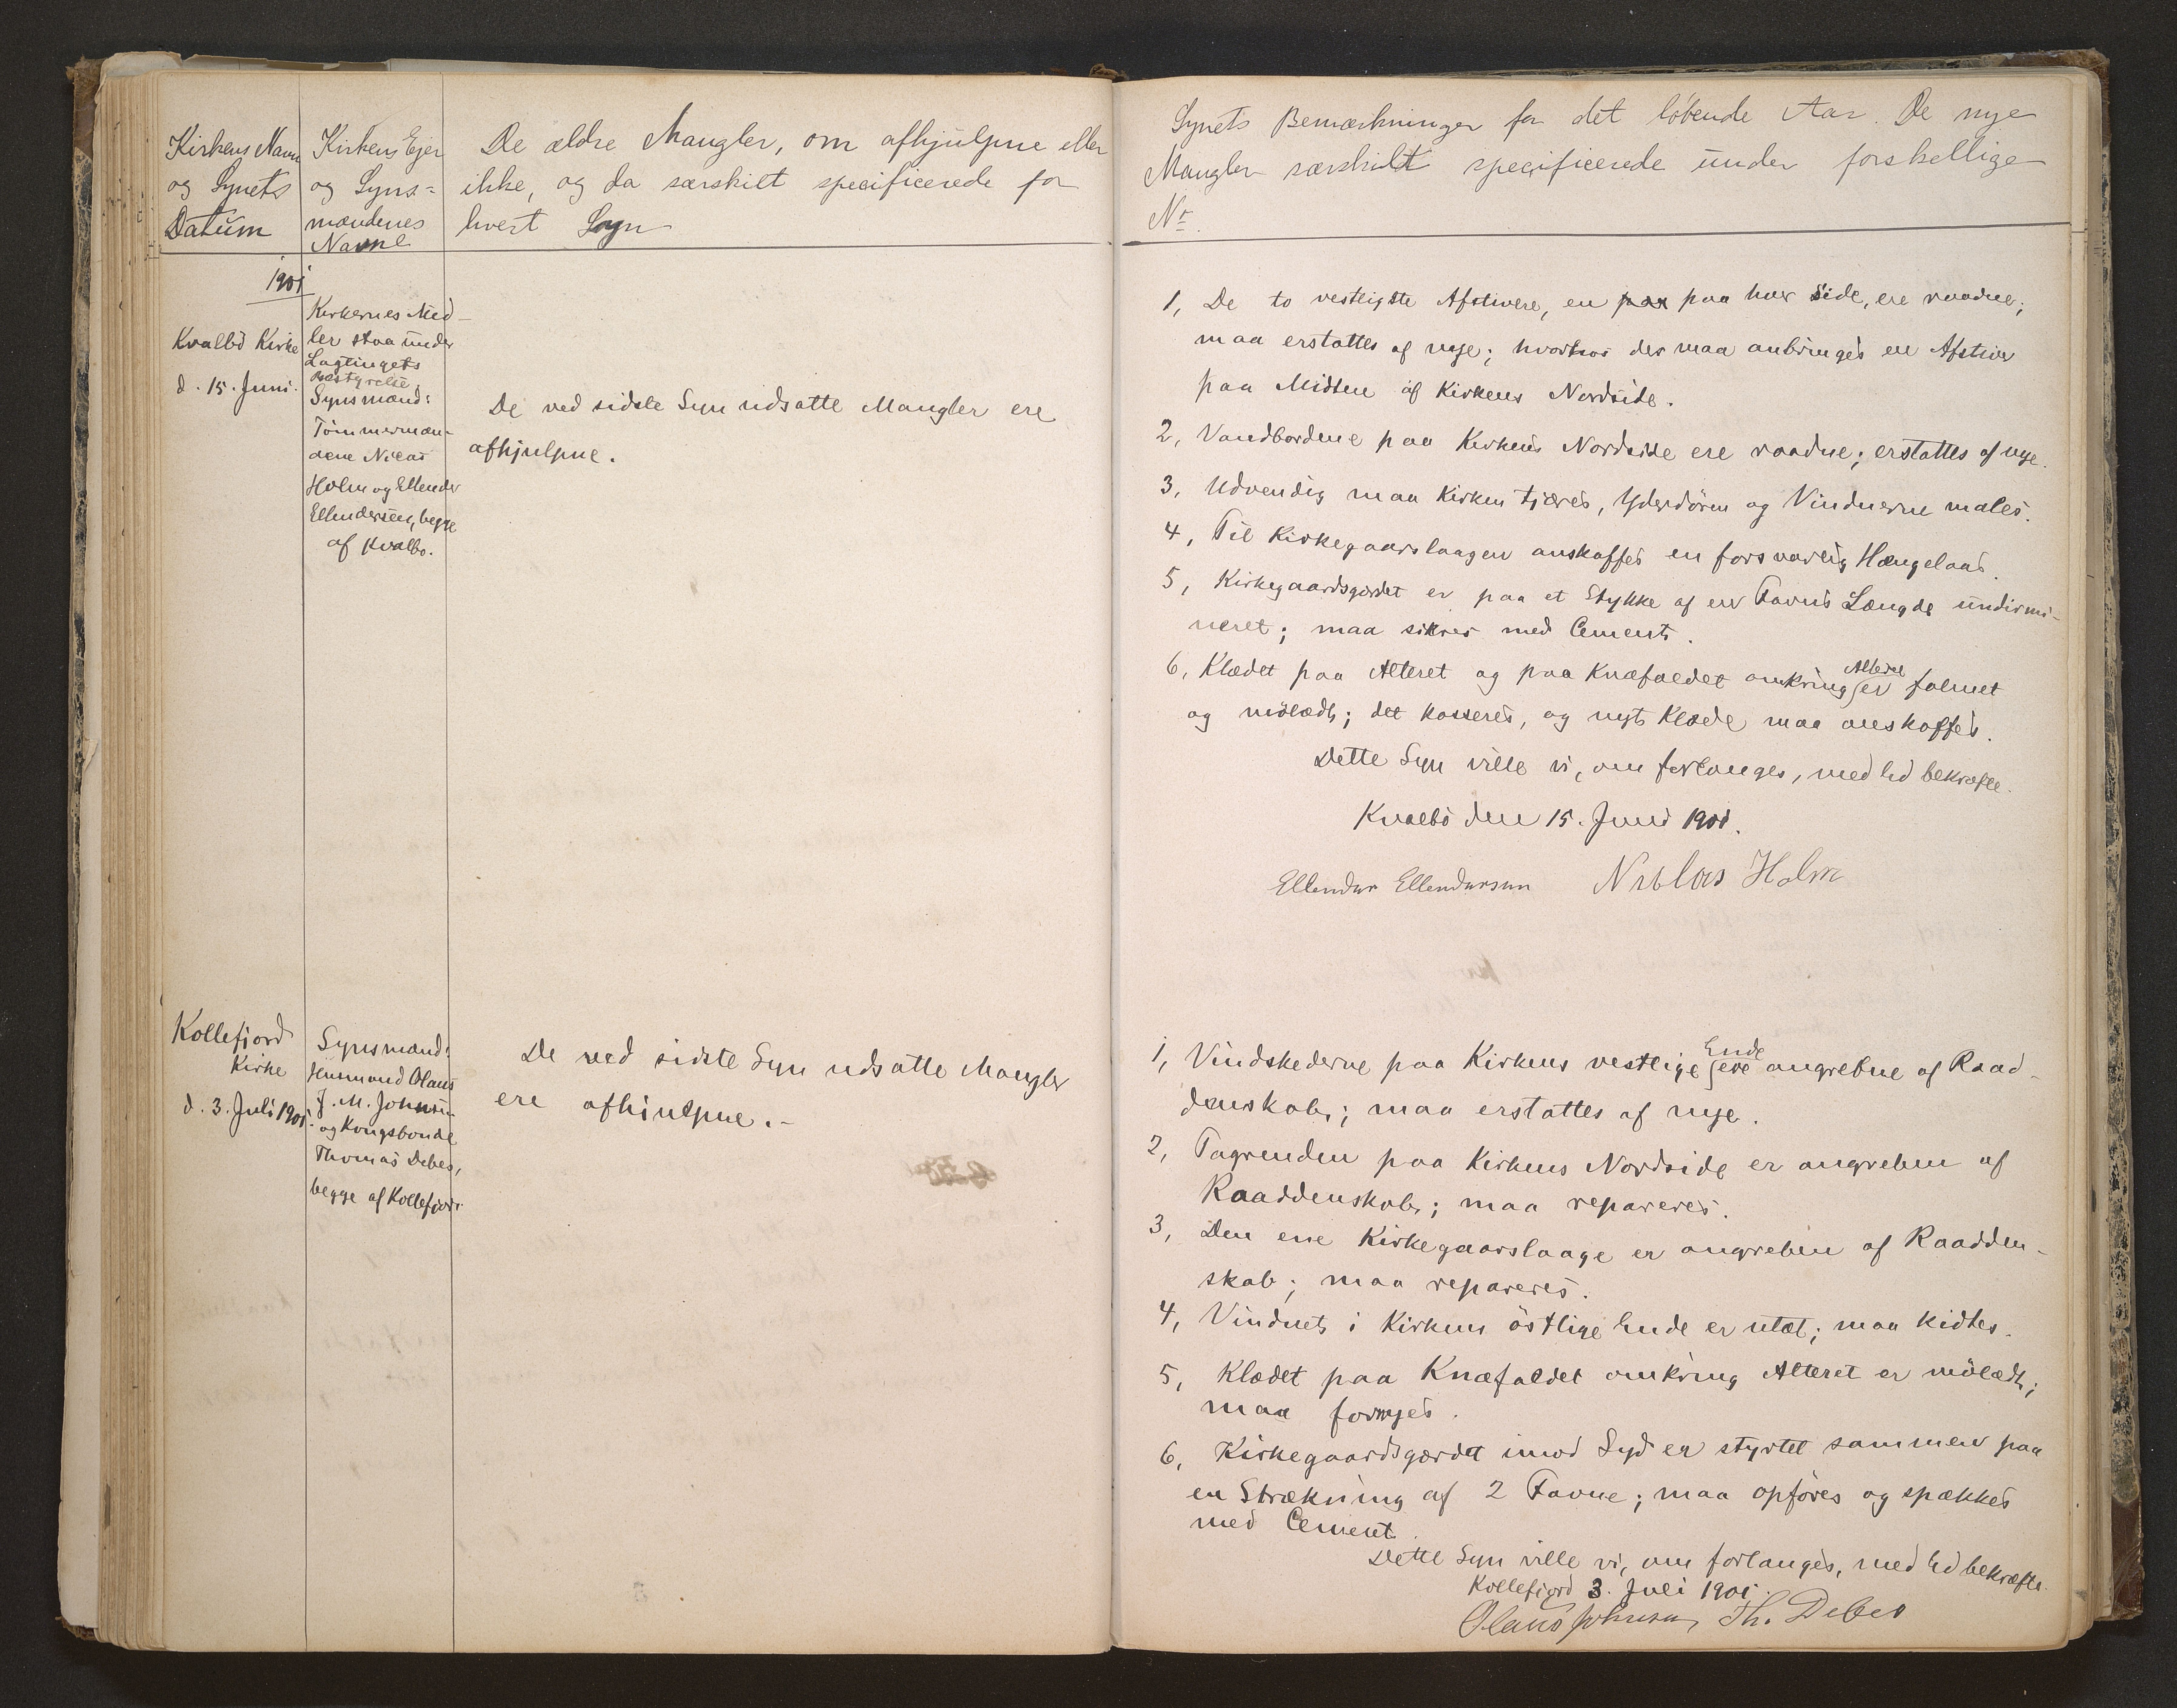 Kirkens Navn
og Synets
Datum
Kirkens Ejer
og Syns-
mændenes
Navne
De ældre Mangler, om afhjulpne eller
ikke, og da særskilt specificerede for
hvert Sogn
1901
Kvalbö Kirke
d. 15. Juni.
Kirkernes Mid-
ler staa under
Lagtingets
Bestyrelse.
Synsmænd:
Tömmermæn-
dene Niclas
Holm og Ellender
Ellendersen, begge
af Kvalbö.
De ved sidste Syn udsatte Mangler ere
afhjulpne.
Kollefjord
Kirke
d. 3. Juli 1901.
Synsmænd:
Husmand Olaus
J. M. Johnsen
og Kongsbonde
Thomas Debes,
begge af Kollefjord.
De ved sidste Syn udsatte Mangler
ere afhjulpne.-
Synets Bemærkninger for det löbende Aar. De nye
Mangler særskildt specificerede under forskellige
Nr.
1, De to vestligste Afstivere, en paa paa hver Side, ere raadne;
maa erstattes af nye; hvorhos der maa anbringes en Afstiver
paa Midten af Kirkens Nordside.
2, Vandbordene paa Kirkens Nordside ere raadne; erstattes af nye.
3, Udvendig maa Kirken tjæres, Yderdören og Vinduerne males.
4, Til Kirkegaarslaagen anskaffes en forsvarlig Hængelaas.
5, Kirkegaardsgærdet er paa et Stykke af en Favns Længde undermi-
neret; maa sikres med Cement.
6, Klædet paa Alteret og paa Knæfaldet omkring Alteret er falmet
og mölædt; det kasseres, og nyt Klæde maa anskaffes.
Dette Syn ville vi, om forlanges, med Ed bekræfte.
Kvalbö den 15. Juni 1901.
Ellendur Ellendursen Niclas Holm
1, Vindskederne paa Kirkens vestlige Ende ere angrebne af Raad-
denskab; maa erstattes af nye.
2, Tagrenden paa Kirkens Nordside er angreben af
Raaddenskab; maa repareres.
3, Den ene Kirkegaarslaage er angreben af Raadden-
skab; maa repareres.
4, Vinduet i Kirkens östlige Ende er utæt; maa kidtes.
5, Klædet paa Knæfaldet omkring Alteret er mölædt;
maa fornyes.
6, Kirkegaardsgærdet imod Syd er styrtet sammen paa
en Strækning af 2 Favne; maa opföres og spækkes
med Cement.
Dette Syn ville vi, om forlanges, med Ed bekræfte.
Kollefjord 3. Juli 1901.
Olaus Johnsen, Th. Debes